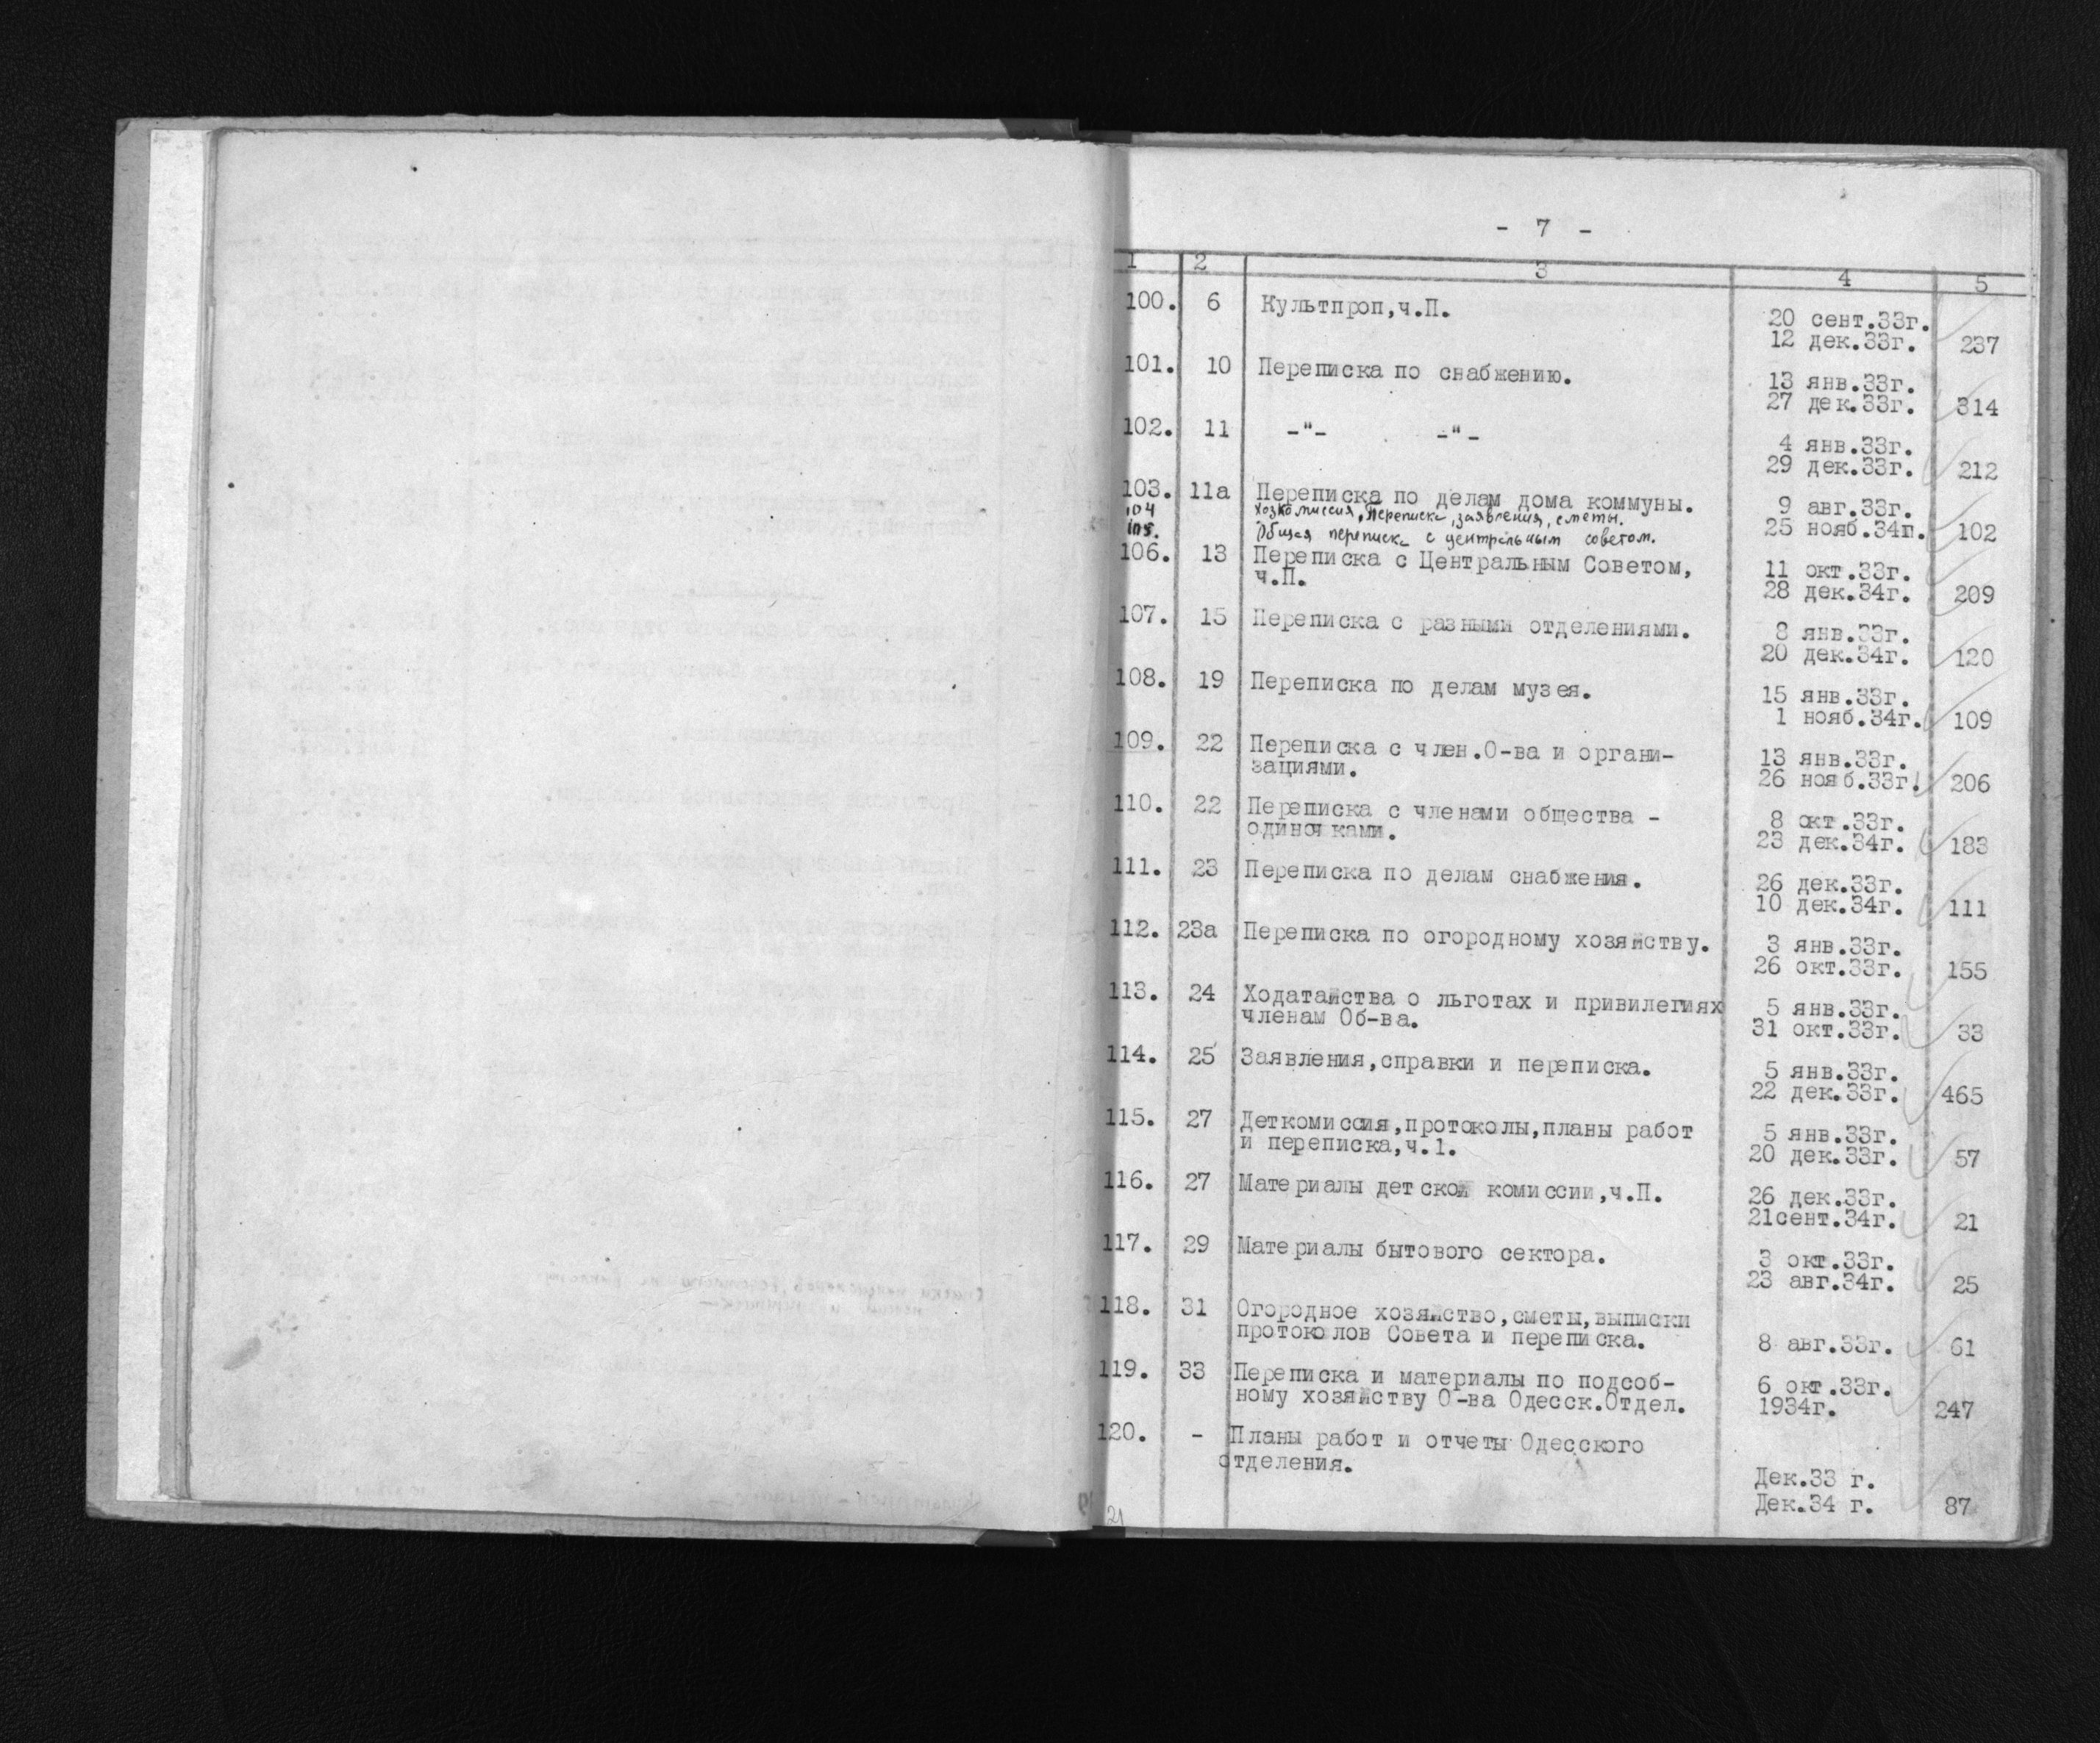 - 7 -
1 2 3 4 5
100. 6 Культпроп,ч.П. 20 сент.33г.
12 дек.33г. 237
101. 10 Переписка по снабжению. 13 янв.33г.
27 дек.33г. 314
102. 11 -"- -"- 4 янв.33г.
29 дек.33г. 212
103. 11а Переписка по делам дома коммуны. 9 авг.33г.
104 Хозкомиссия, переписка, заявления, сметы. 25 нояб.34г. 102
105. Общая переписка с центральным советом.
106. 13 Переписка с Центральным Советом, 11 окт.33г.
ч.П. 28 дек.34г. 209
107. 15 Переписка с разными отделениями. 8 янв.33г.
20 дек.34г. 120
108. 19 Переписка по делам музея. 15 янв.33г.
1 нояб.34г. 109
109. 22 Переписка с член.О-ва и органи- 13 янв.33г.
зациями. 26 нояб.33г. 206
110. 22 Переписка с членами общества - 8 окт.33г.
одиночками. 23 дек.34г. 183
111. 23 Переписка по делам снабжения. 26 дек.33г.
10 дек.34г. 111
112. 23а Переписка по огородному хозяйству. 3 янв.33г.
26 окт.33г. 155
113. 24 Ходатайства о льготах и привилегиях 5 янв.33г.
членам Об-ва. 31 окт.33г. 33
114. 25 Заявления,справки и переписка. 5 янв.33г.
22 дек.33г. 465
115. 27 Деткомиссия,протоколы,планы работ 5 янв.33г.
и переписка,ч.1. 20 дек.33г. 57
116. 27 Материалы детской комиссии,ч.П. 26 дек.33г.
21сент.34г. 21
117. 29 Материалы бытового сектора. 3 окт.33г.
23 авг.34г. 25
118. 31 Огородное хозяйство,сметы,выписки
протоколов Совета и переписка. 8 авг.33г. 61
119. 33 Переписка и материалы по подсоб- 6 окт.33г.
ному хозяйству О-ва Одесск.Отдел. 1934г. 247
120. - Планы работ и отчеты Одесского
отделения. Дек.33 г.
Дек.34 г. 87
21